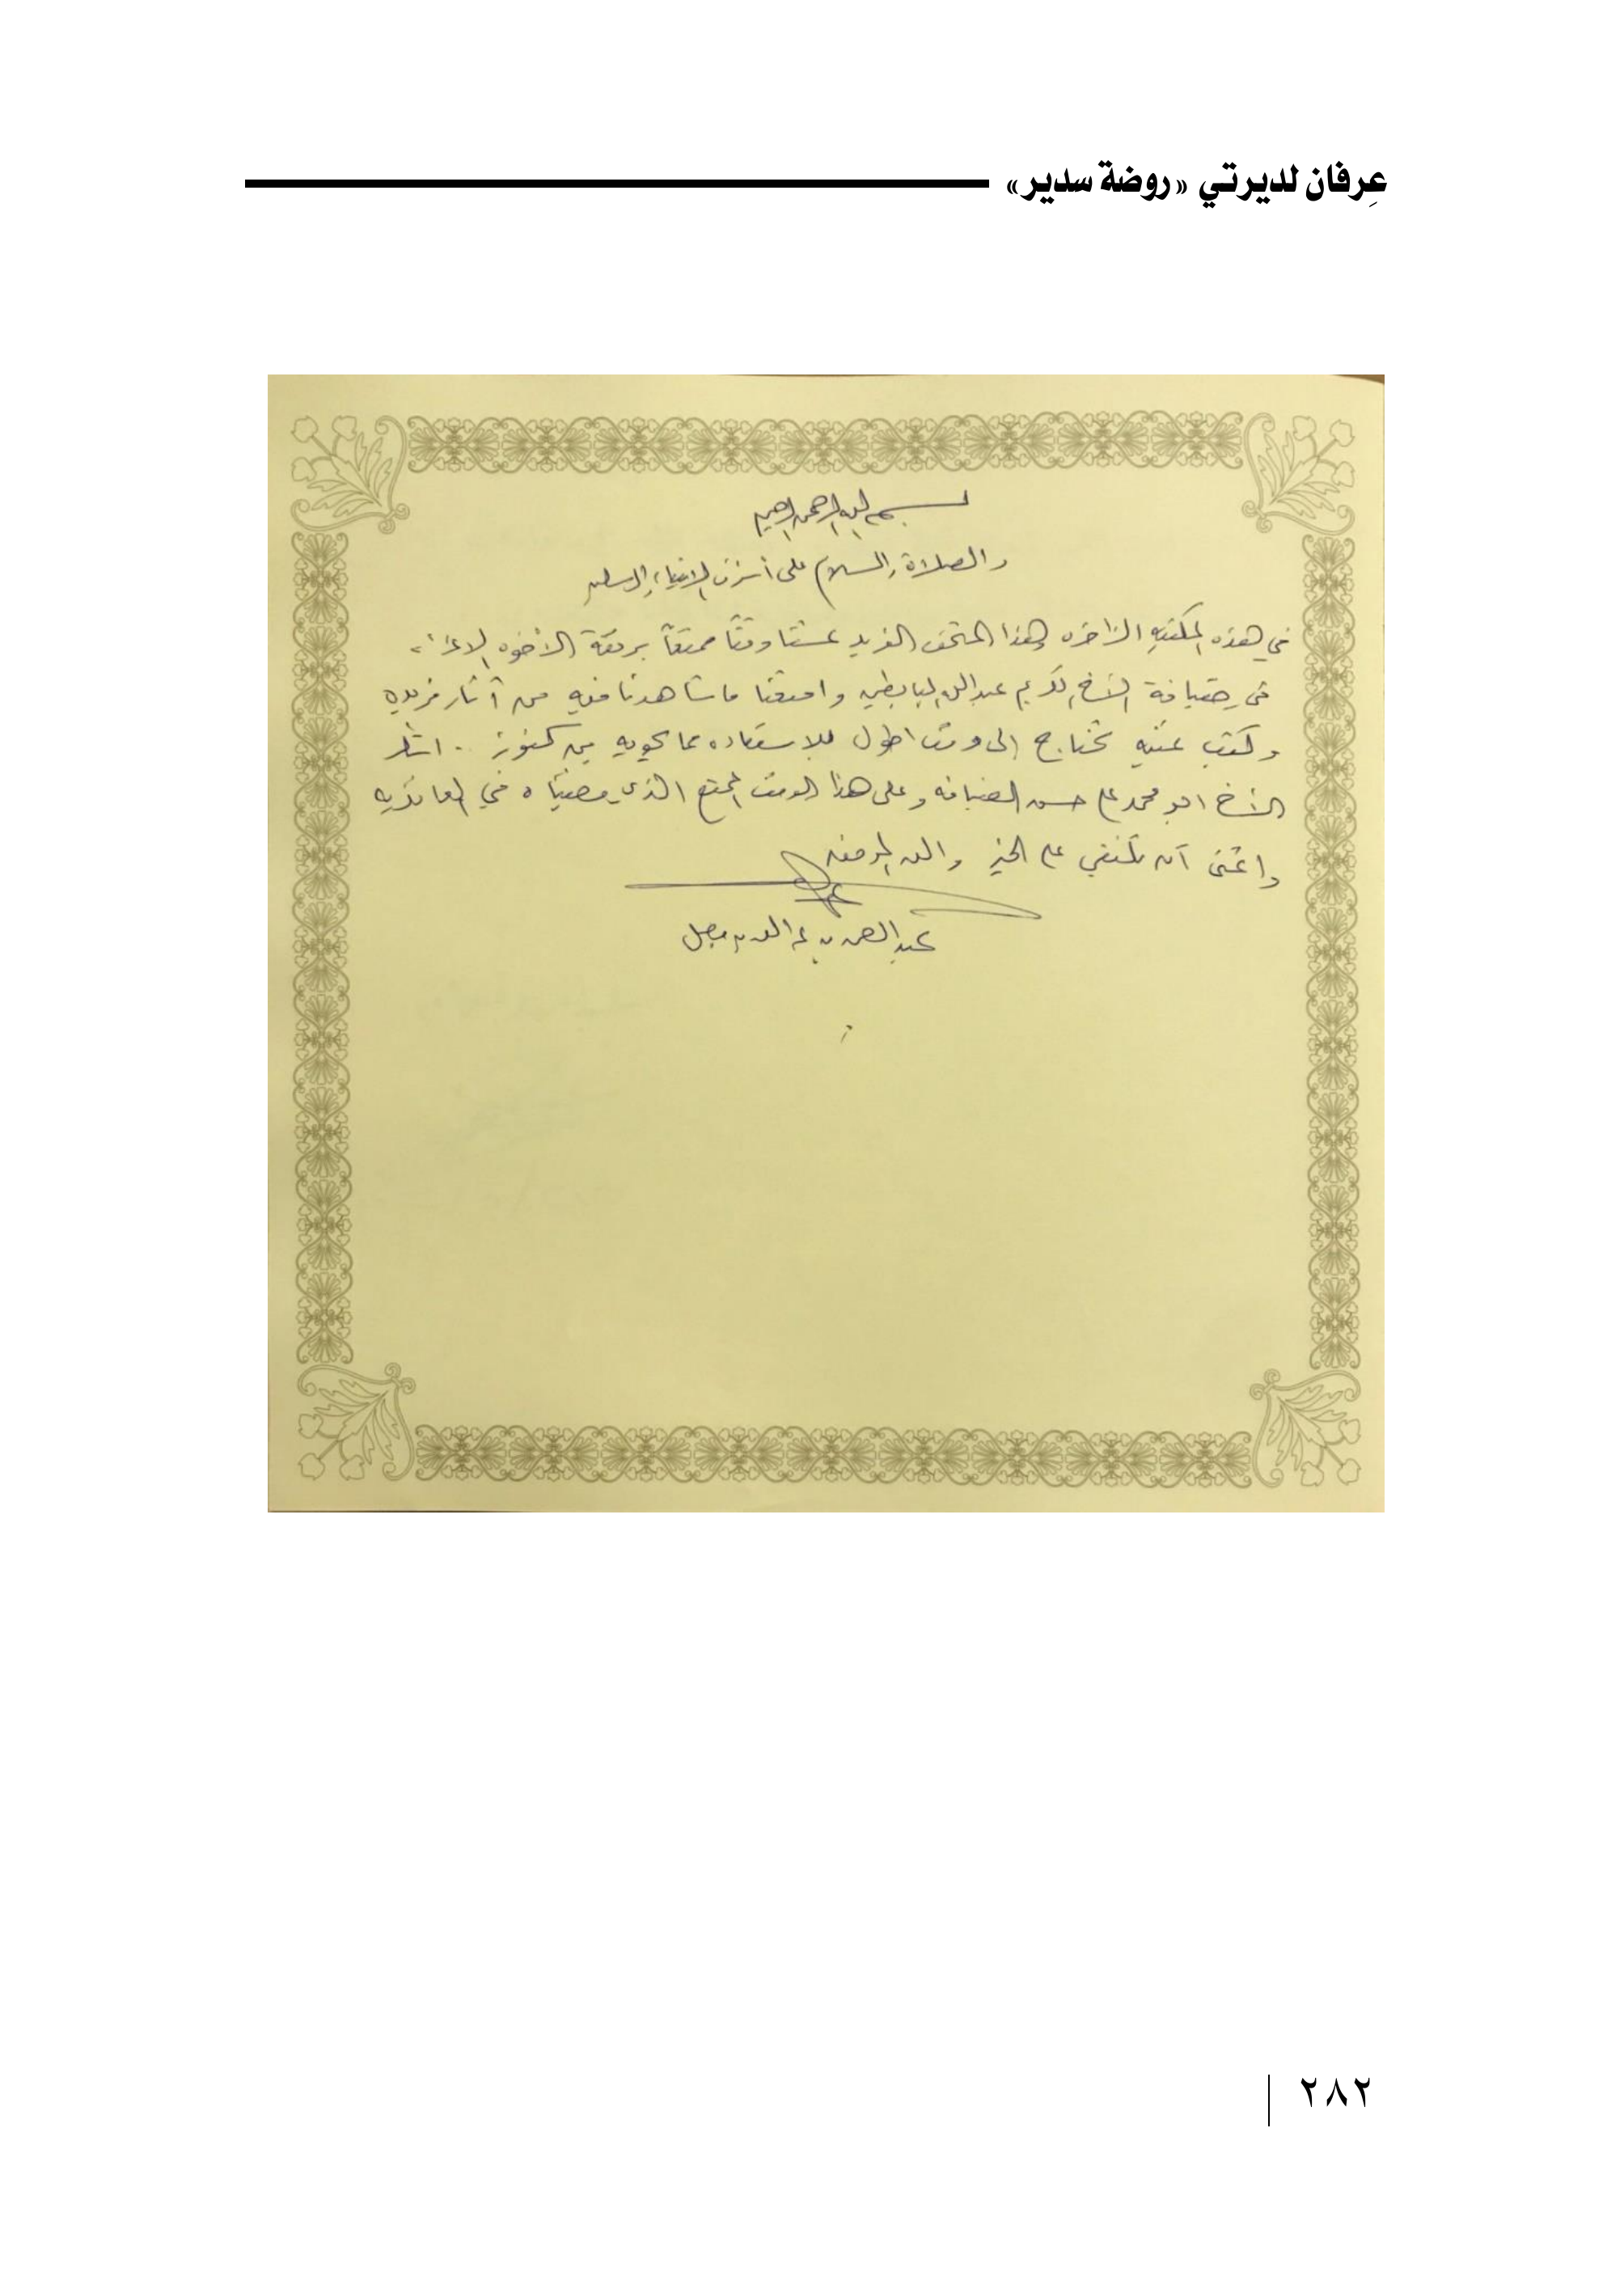 عِرفان لديرتي «روضة سدير»
بسم الله الرحمن الرحيم
والصلاة والسلام على أشرف الانبياء والمرسلين
في هذه المكتبه الزاخره وهذا المتحف الفريد عشنا وقتاً ممتعاً برفقة الأخوه الاعزاء
في ضيافة الأخ الكريم عبدالله البابطين وامتعنا ما شاهدنا فيه من آثار فريده
وكتب عنيه تحتاج إلى وقت اطول للاستفاده مما تحويه من كنوز .. اشكر
الأخ ابو محمد على حسن الضيافه وعلى هذا الوقت الممتع الذي قضيناه في
واتمنى أن نلتقي على الخير والله الموفق
عبدالله بن
٢٨٢